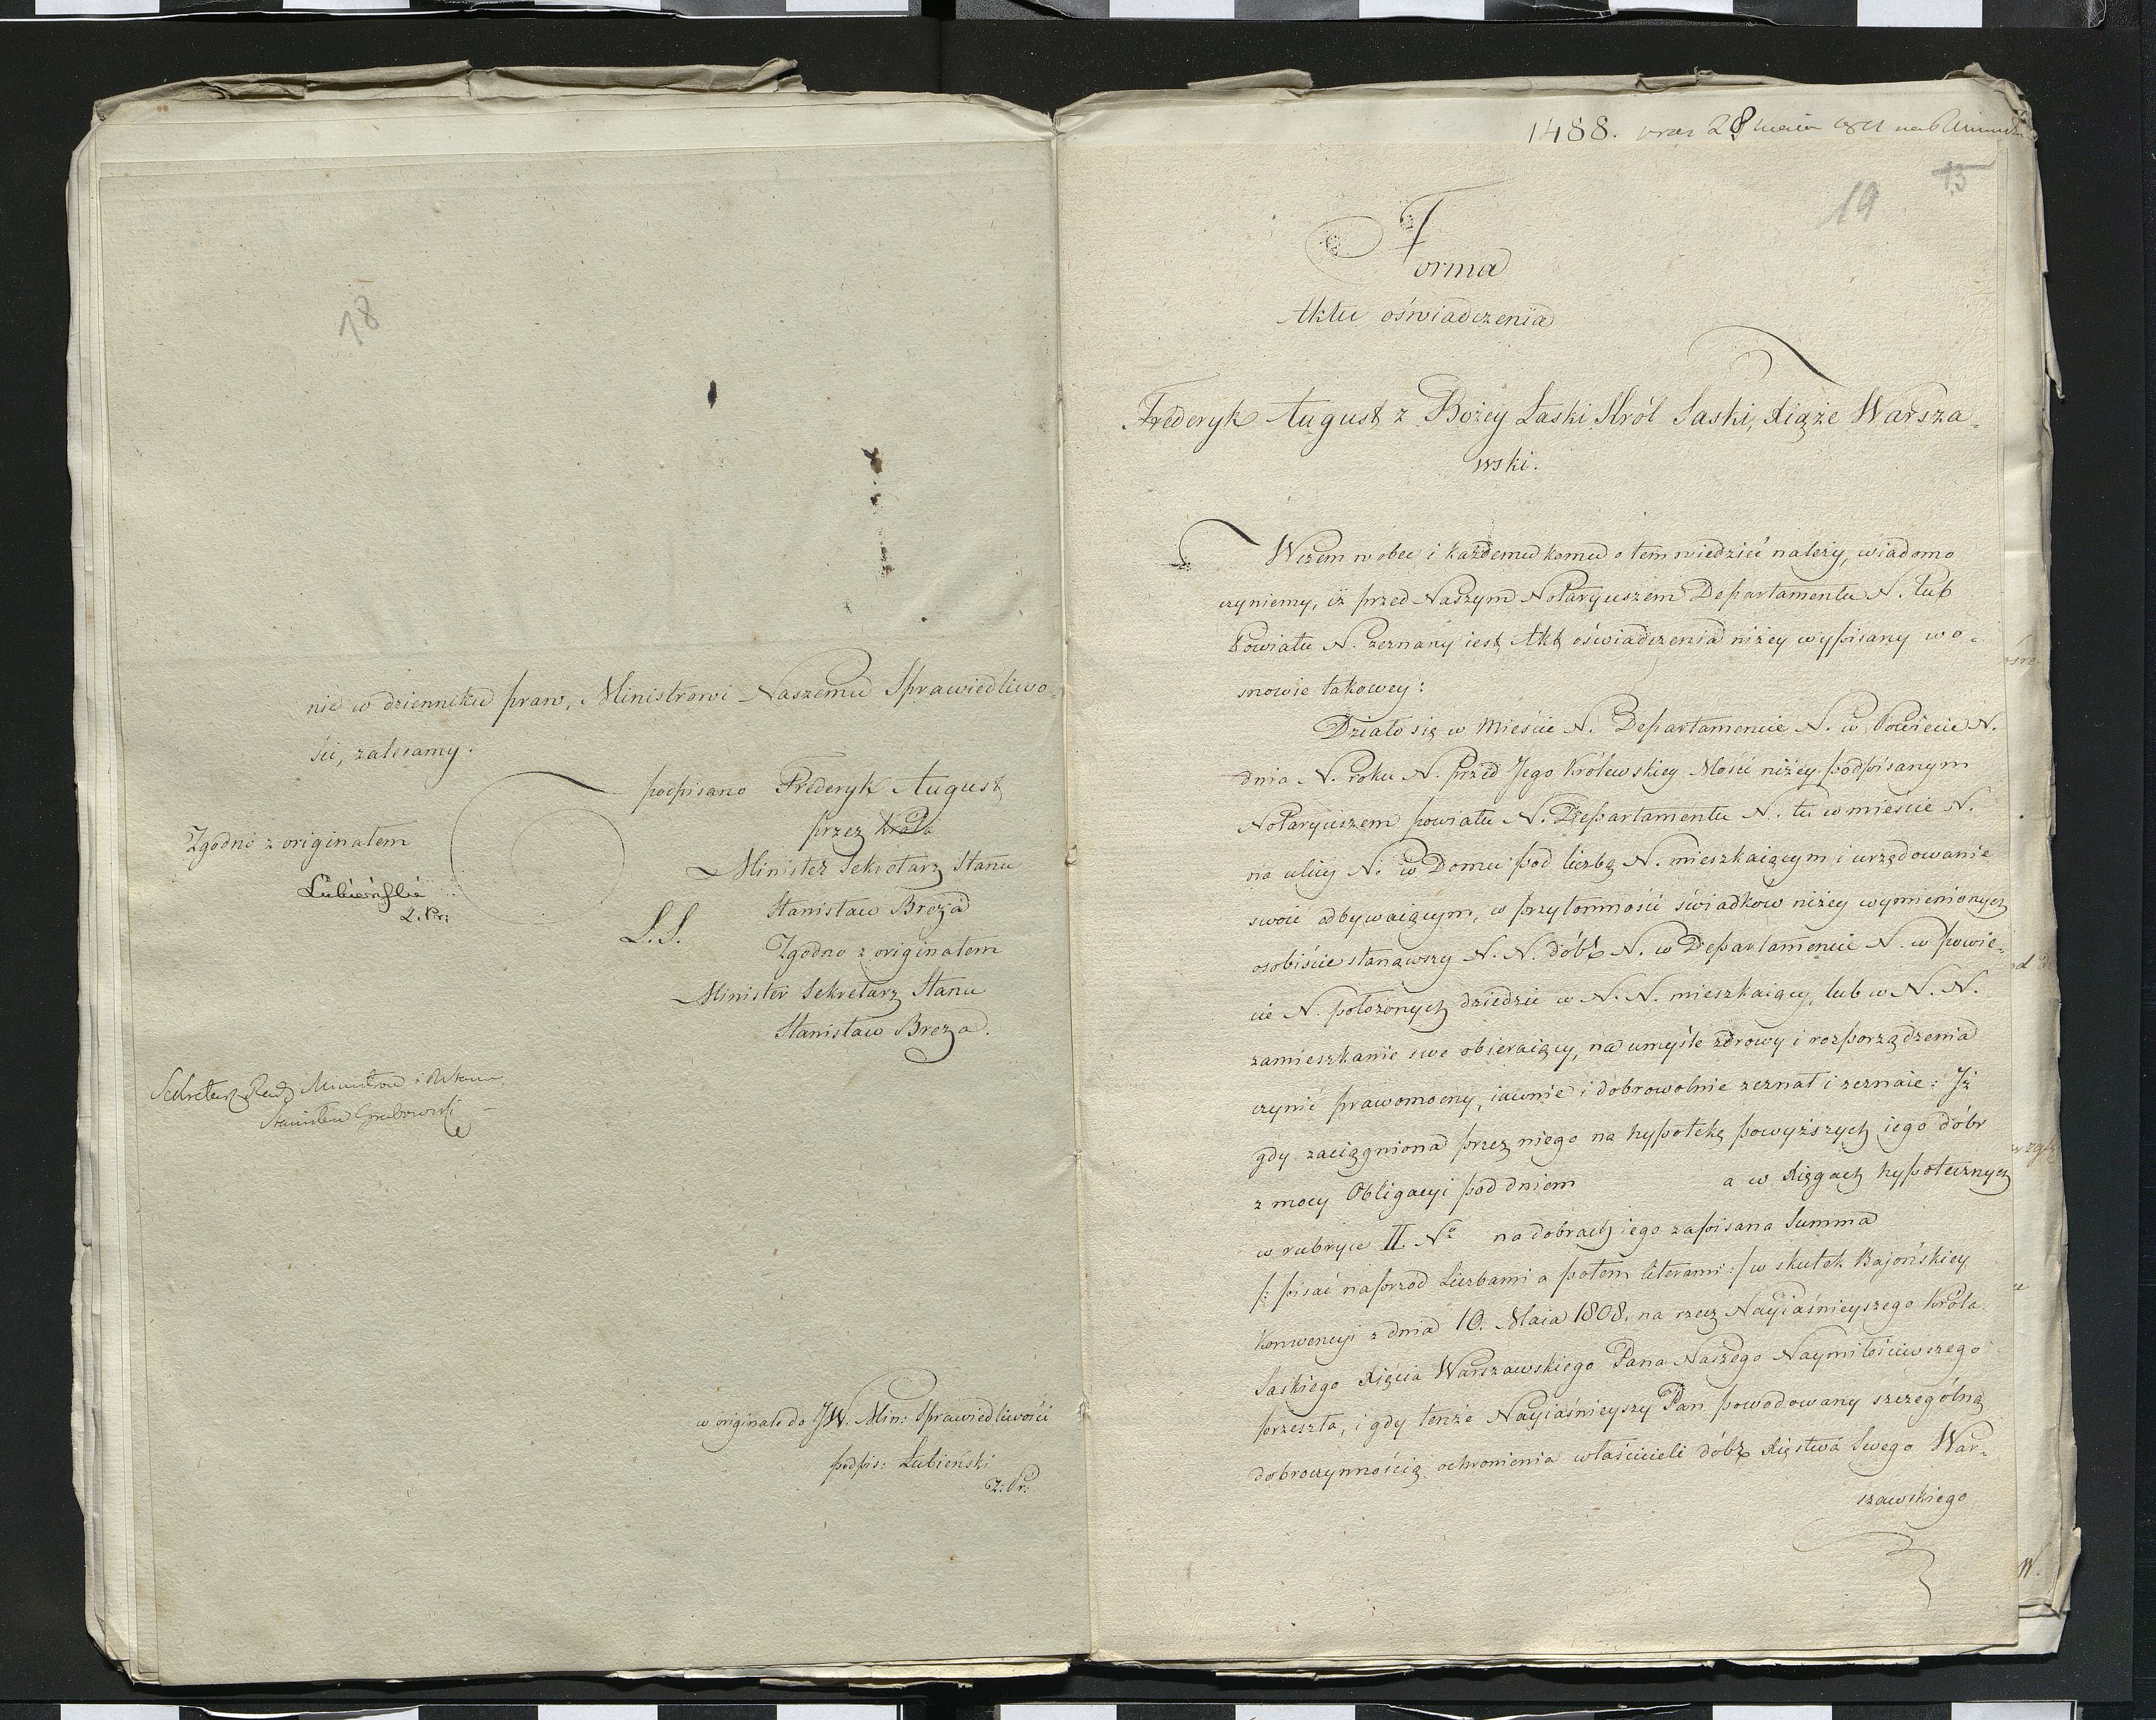 18
nie w dzienniku praw, Ministrowi Naszemu Sprawiedliwo-
ści, zalecamy.
podpisano Frederyk August
przez Króla
Minister Sekretarz Stanu
L.S. Stanisław Breza
Zgodno z originałem
Minister Sekretarz Stanu
Stanisław Breza.
Zgodno z originałem
Łubieński
Z. Pr:
Sekretarz Rady Ministrow i Stanu
Stanisław Grabowski
w originale do JW. Min: Sprawiedliwości
podpis: Łubieński
Z: Pr:
1488. 28 maia
19 13
Forma
Aktu oświadczenia
Frederyk August z Bożey Łaski Król Saski, Xiąże Warsza-
wski.
Wszem w obec i każdemu komu o tem wiedzieć należy, wiadomo
czyniemy, iż przed Naszym Notaryuszem Departamentu N. lub
Powiatu N. zeznany iest Akt oświadczenia niżey wypisany w o-
snowie takowey:
Działo się w Mieście N. Departamencie N. w Powiecie N.
dnia N. roku N. przed Jego Królewskiey Mości niżey podpisanym
Notaryuszem powiatu N. Departamentu N. tu w mieście N.
na ulicy N. w Domu pod liczbą N. mieszkaiącym i urzędowanie
swoie odbywaiącym, w przytomności świadkow niżey wymienionych
osobiście stanąwszy N. N. dóbr N. w Departamencie N. w powie-
cie N. położonych dziedzic w N. N. mieszkaiący, lub w N. N.
zamieszkanie swe obieraiący, na umyśle zdrowy i rozporządzenia
czynić prawomocny, iawnie i dobrowolnie zeznał i zeznaie: Iż
gdy zaciągniona przez niego na hypotekę powyższych iego dóbr
z mocy Obligacyi pod dniem a w Xięgach hypotecznych
w rubryce II. No na dobrach iego zapisana Summa
/: pisać naprzod Liczbami a potem literami :/ w skutek Bajońskiey
Konwencyi z dnia 10. Maia 1808. na rzecz Nayiaśnieyszego Króla
Saskiego Xięcia Warszawskiego Pana Naszego Naymiłościwszego
przeszła, i gdy tenże Nayiaśnieyszy Pan powodowany szczególną
dobroczynnością ochronienia właścicieli dóbr Xięstwa Swego War-
szawskiego